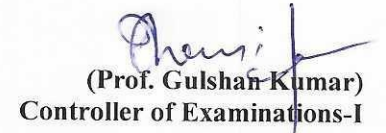 (Prof. Gulshan Kumar)
Controller of Examinations-I